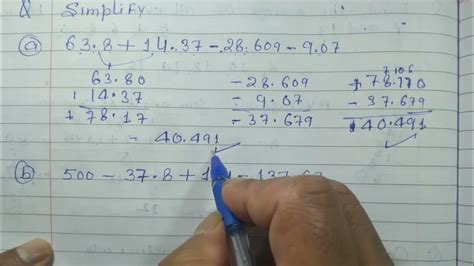 Q Simplify
(a) 63.8 + 14.37 - 28.609 - 9.07
63.80
+ 14.37
+ 78.17
- 28.609
- 9.07
- 37.679
+ 78.170
- 37.679
+40.491
- 40.491
(b) 500 - 37.8 + 1 - 137.62